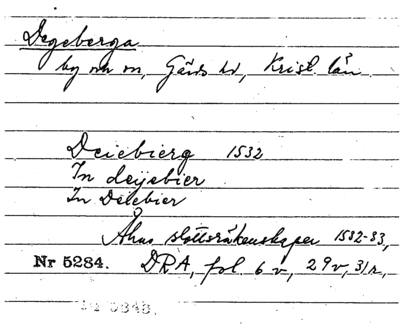 Degeberga
by och sn, Gärds hd, Krist. län.
Deiebierg 1532
In deijebier
In Deiebier
Åhus slottsräkenskaper 1532-33,
Nr 5284. DRA, fol. 6 v, 29 v, 31 r,